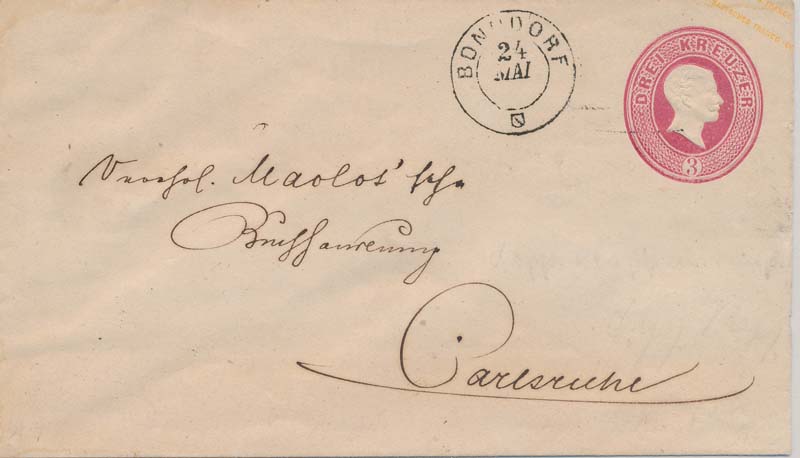 BONNDORF
24
MAI
DREI KREUZER
3
Maclot'sche
Buchhandlung
Carlsruhe